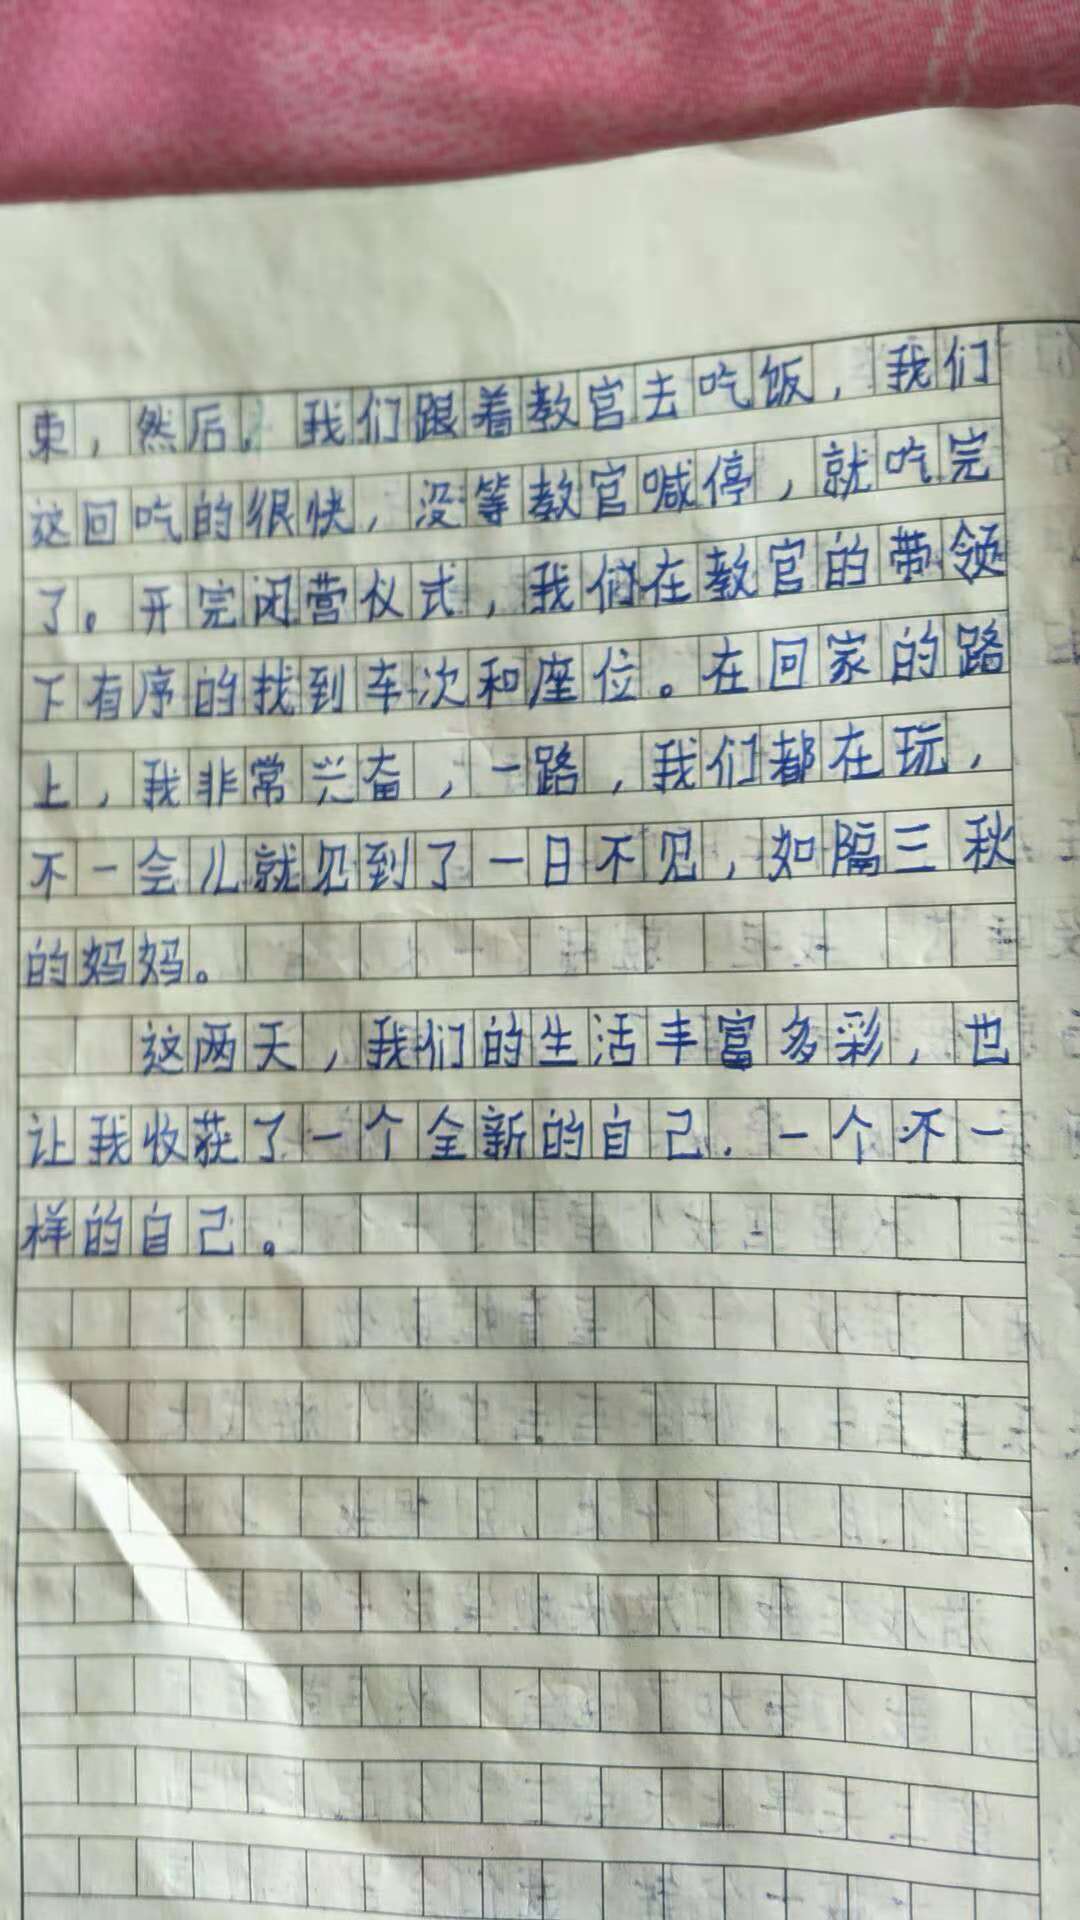 束，然后，我们跟着教官去吃饭，我们
这回吃的很快，没等教官喊停，就吃完
了。开完闭营仪式，我们在教官的带领
下有序的找到车次和座位。在回家的路
上，我非常兴奋，一路，我们都在玩，
不一会儿就见到了一日不见，如隔三秋
的妈妈。
这两天，我们的生活丰富多彩，也
让我收获了一个全新的自己．一个不一
样的自己。